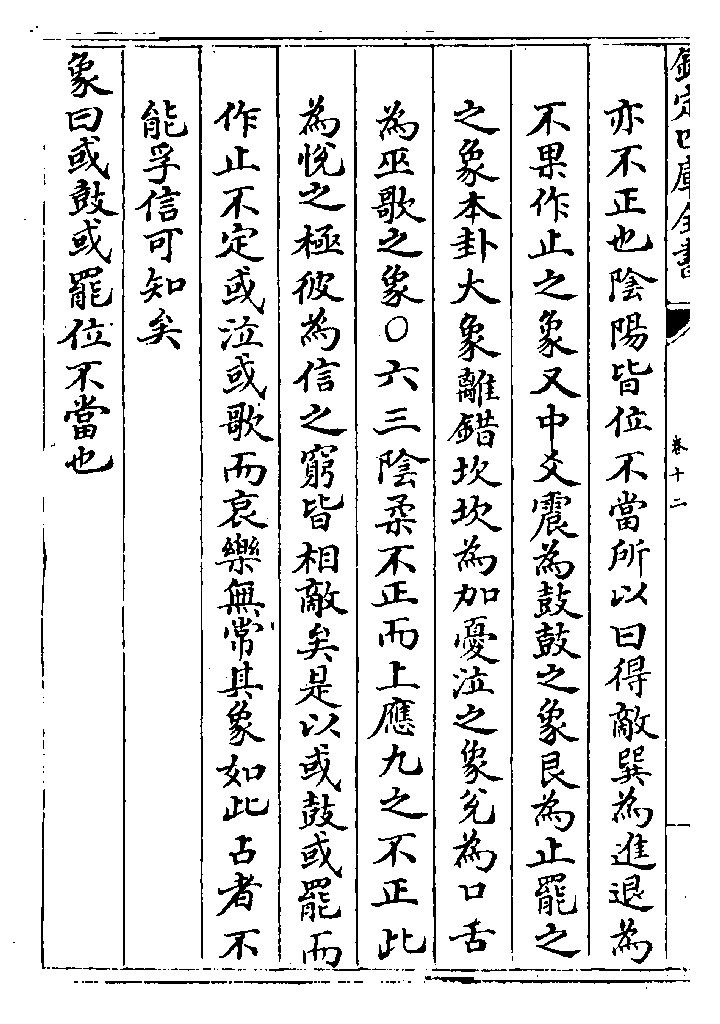 欽定四庫全書
卷十二
亦不正也陰陽皆位不當所以曰得敵巽為進退為
不果作止之象又中爻震為鼓鼓之象艮為止罷之
之象本卦大象離錯坎坎為加憂泣之象兌為口舌
為巫歌之象○六三陰柔不正而上應九之不正此
為悅之極彼為信之窮皆相敵矣是以或鼓或罷而
作止不定或泣或歌而哀樂無常其象如此占者不
能孚信可知矣
象曰或鼓或罷位不當也